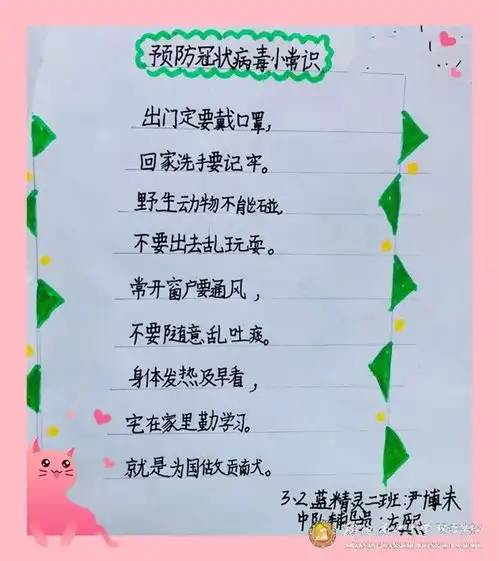 预防冠状病毒小常识
出门定要戴口罩,
回家洗手要记牢。
野生动物不能碰.
不要出去乱玩耍。
常开窗户要通风,
不要随意乱吐痰。
身体发热及早看,
宅在家里勤学习。
就是为国做贡献大。
3.2蓝精灵二班:尹博未
中队辅导员:左熙